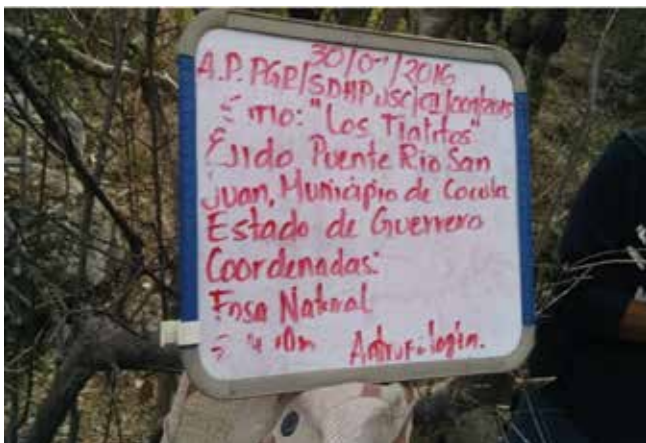 30/0 /2016
A.P. PGR/SDHPDSC/OI/001/2015
"Los Tiatitos"
Ejido Puente Rio San
Juan, Municipio de Cocula
Estado de Guerrero
Coordenadas:
Fosa Natural
Antropología.